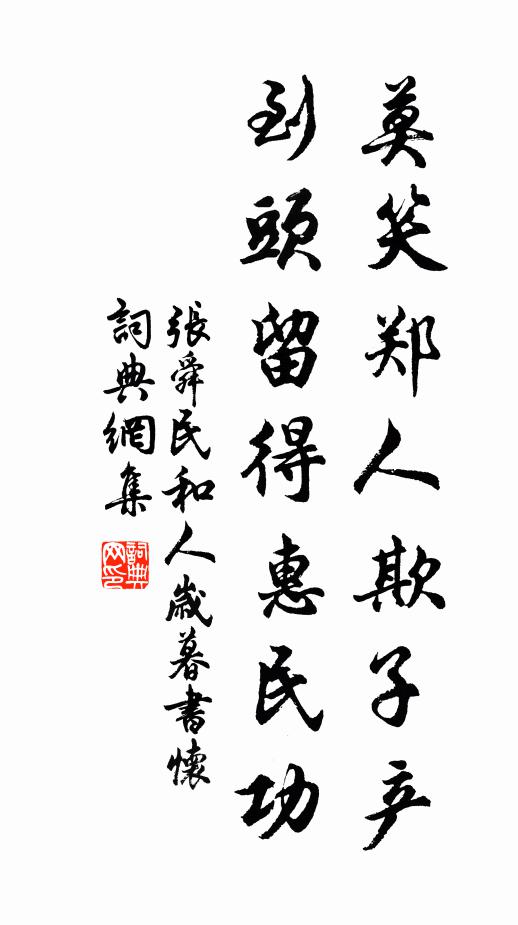 莫笑郑人欺子产
到頭留得惠民功
張舜民和人歲暮書懷
詞典網集
詞典网印